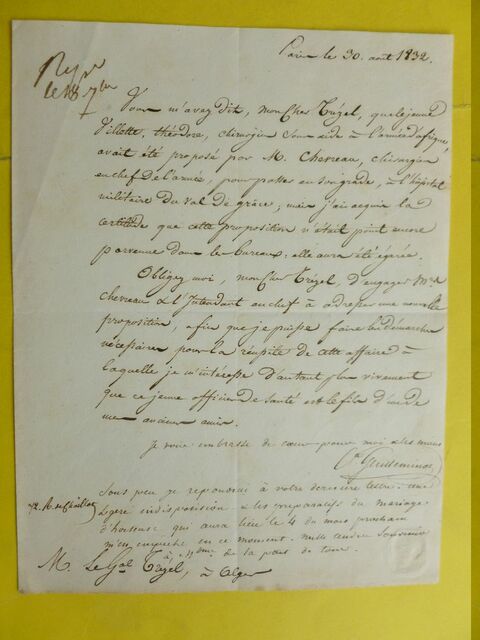 Paris le 30. août 1832.
Rep.
le 18 7bre
Vous m'avez dit, mon cher Trézel, que le jeune
Villette, théodore, chirurgien sous aide à l'armée d'afrique,
avait été proposé par M. Chevreau, chirurgien
en chef de l'armée, pour passer en son grade, à l'hôpital
militaire du Val de grâce; mais j'ai acquis la
certitude que cette proposition n'était point encore
parvenue dans les bureaux: elle aura été égarée.
Obligez moi, mon cher Trézel, d'engager Mr.
chevreau & l'Intendant en chef à adresser une nouvelle
proposition, afin que je puisse faire les démarches
nécessaires pour la réussite de cette affaire à
laquelle je m'intéresse d'autant plus vivement
que ce jeune officier de santé est le fils d'un de
mes anciens amis.
je vous embrasse de cœur pour moi & les miens
Cte Guilleminot
Sous peu je repondrai à votre dernière lettre. une
légère indisposition & les préparatifs du mariage
d'hortense qui aura lieu le 4 du mois prochain
m'en empêche en ce moment. mille tendres souvenirs
à Mme de la part de tous.
M. Le Gal Trézel, à Alger